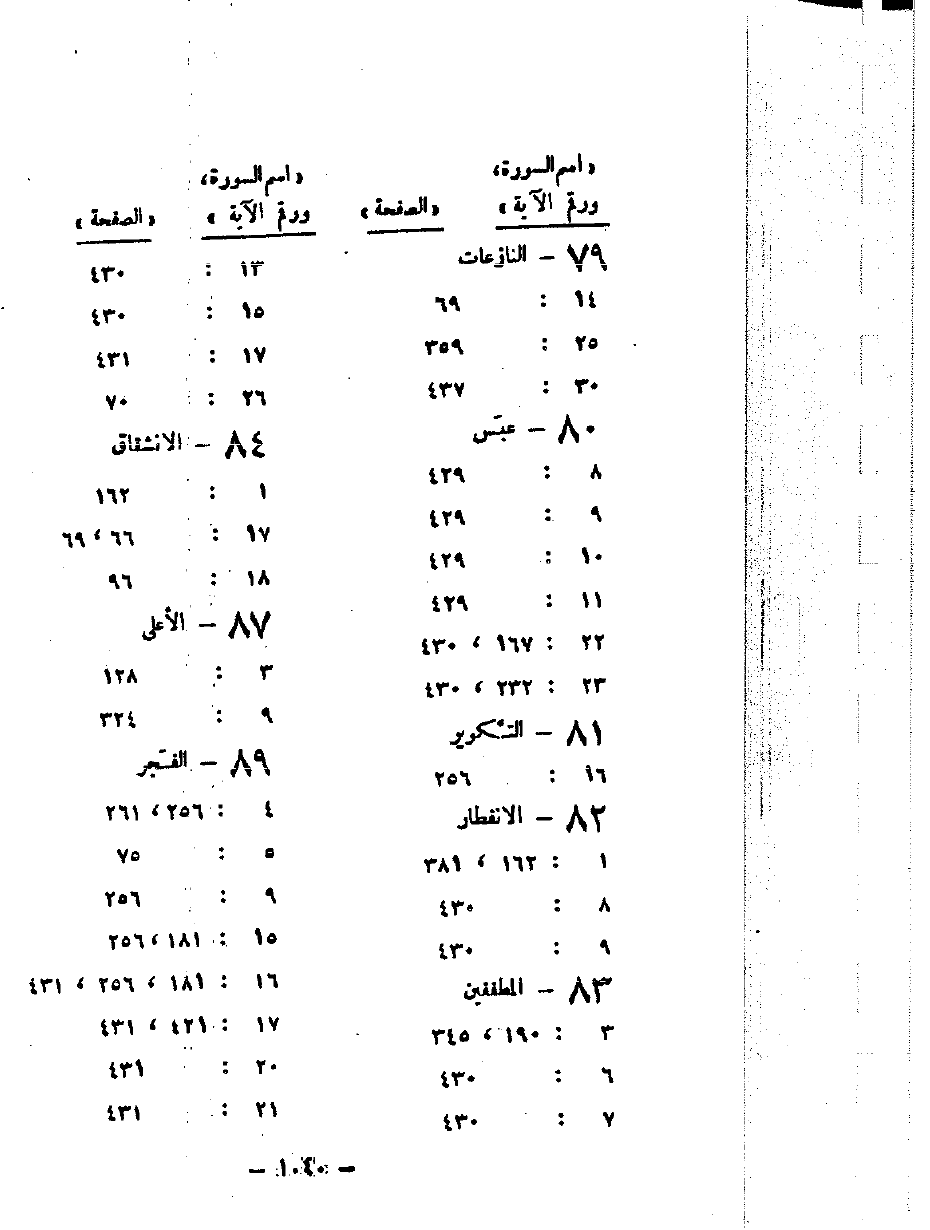 « اسم السورة»
ورقم الآية » « الصفحة »
٧٩ – النازعات
١٤ : ٦٩
٢٥ : ٣٥٩
٣٠ : ٤٣٧
٨٠ – عبَس
٨ : ٤٢٩
٩ : ٤٢٩
١٠ : ٤٢٩
١١ : ٤٢٩
٢٢ : ١٦٧ ، ٤٣٠
٢٣ : ٢٣٢ ، ٤٣٠
٨١ – التّكوير
١٦ : ٢٥٦
٨٢ – الانفطار
١ : ١٦٢ ، ٣٨١
٨ : ٤٣٠
٩ : ٤٣٠
٨٣ – المطففين
٣ : ١٩٠ ، ٣٤٥
٦ : ٤٣٠
٧ : ٤٣٠
« اسم السورة»
ورقم الآية » « الصفحة »
١٣ : ٤٣٠
١٥ : ٤٣٠
١٧ : ٤٣١
٢٦ : ٧٠
٨٤ – الانشقاق
١ : ١٦٢
١٧ : ٦٦ ، ٦٩
١٨ : ٩٦
٨٧ – الأعلى
٣ : ١٢٨
٩ : ٣٢٤
٨٩ – الفتجر
٤ : ٢٥٦ ، ٢٦١
٥ : ٧٥
٩ : ٢٥٦
١٥ : ١٨١ ، ٢٥٦
١٦ : ١٨١ ، ٢٥٦ ، ٤٣١
١٧ : ٤٢١ ، ٤٣١
٢٠ : ٤٣١
٢١ : ٤٣١
– ١٠٤٠ –